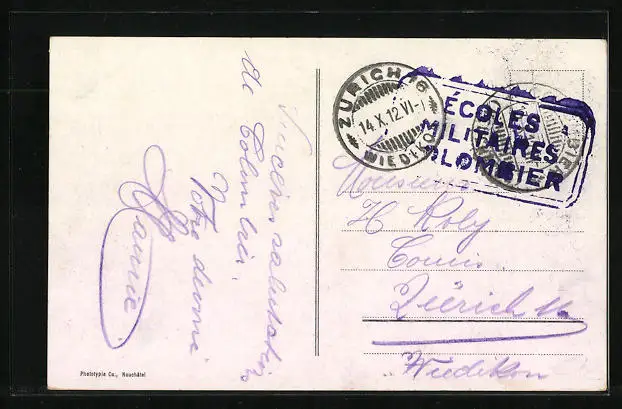 Sincères salutations
de Colombier.
Votre dévoué
ZÜRICH 16
14.X.12.VI-
WIEDIKON
ÉCOLES
MILITAIRES
COLOMBIER
Monsieur
H
Comis
Zürich
Wiedikon
Phototypie Co., Neuchâtel